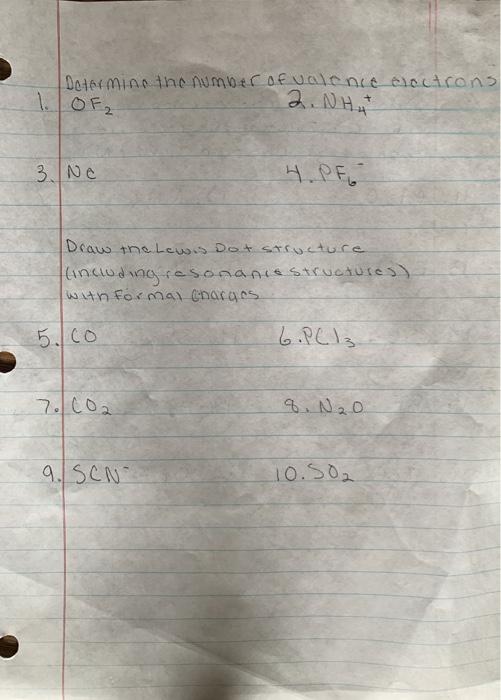 Determine the number of valence electrons
1. OF₂ 2. NH₄⁺
3. Ne 4. PF₆⁻
Draw the Lewis Dot structure
(including resonance structures)
with formal charges
5. CO 6. PCl₃
7. CO₂ 8. N₂O
9. SCN⁻ 10. SO₂